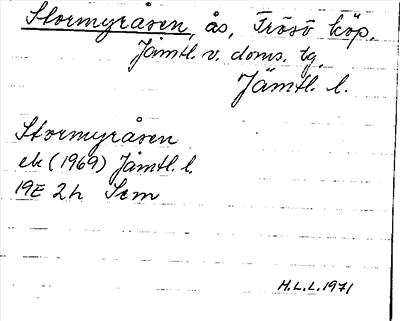 Stormyråsen, ås, Frösö köp.
Jämtl. v. doms. tg.
Jämtl. l.
Stormyråsen
ek (1969) Jämtl. l.
19E 2h Sem
H.L.L. 1971